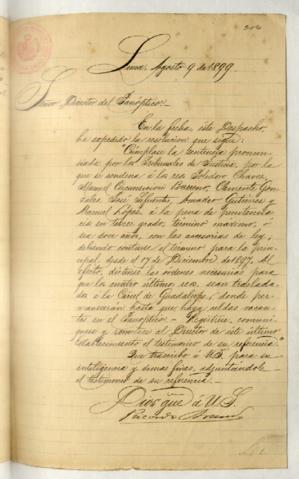 Lima, Agosto 9 de 1899.
Señor Director del Panóptico.
En la fecha, este Despacho,
ha expedido la resolución que sigue:
"Cúmplase la sentencia pronun-
ciada por los Tribunales de Justicia por la
que se condena á los reos Chavez,
Manuel Circuncición Barreno, Clemente Gon-
zales, José Sifuentes, Amador Gutierrez y
Manuel López, á la pena de penitencia-
ría en tercer grado, término máximo, ó
sea doce años, con las accesorias de ley,
debiendo contarse el término para la prin-
cipal, desde el 17 de Diciembre de 1897. Al
efecto, díctense las órdenes necesarias para
que los cuatro últimos reos, sean traslada-
dos á la Carcel de Guadalupe, donde per-
manecerán hasta que haya celdas vacan-
tes en el Panóptico. Regístrese, comuní-
quese y remítase al Director de este último
establecimiento el testimonio de su referencia."
Que trascribo á US. para su
inteligencia y demas fines, adjuntándole
el testimonio de su referencia.
Dios gue. á U.S.
Ricardo